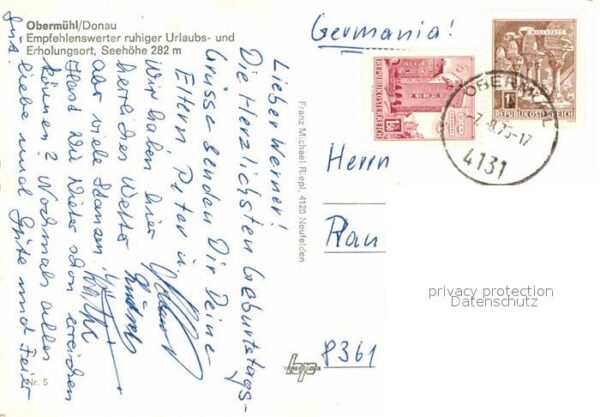 Obermühl/Donau
Empfehlenswerter ruhiger Urlaubs- und
Erholungsort, Seehöhe 282 m
Germania!
MILLSTATT
REPUBLIK ÖSTERREICH
REPUBLIK ÖSTERREICH
OBERMÜHL
-7.-8.75-17
4131
Herrn
Rau
8361
privacy protection
Datenschutz
Franz Michael Riepl, 4120 Neufelden
Nr. 5
Lieber Werner!
Die Herzlichsten Geburtstags-
Grüsse senden Dir Deine
Eltern Peter u.
Wir haben hier
herrliches Wetter
aber viele
Hast Du Dieter schon erreichen
können? Nochmals alles
liebe und Gute und Feier